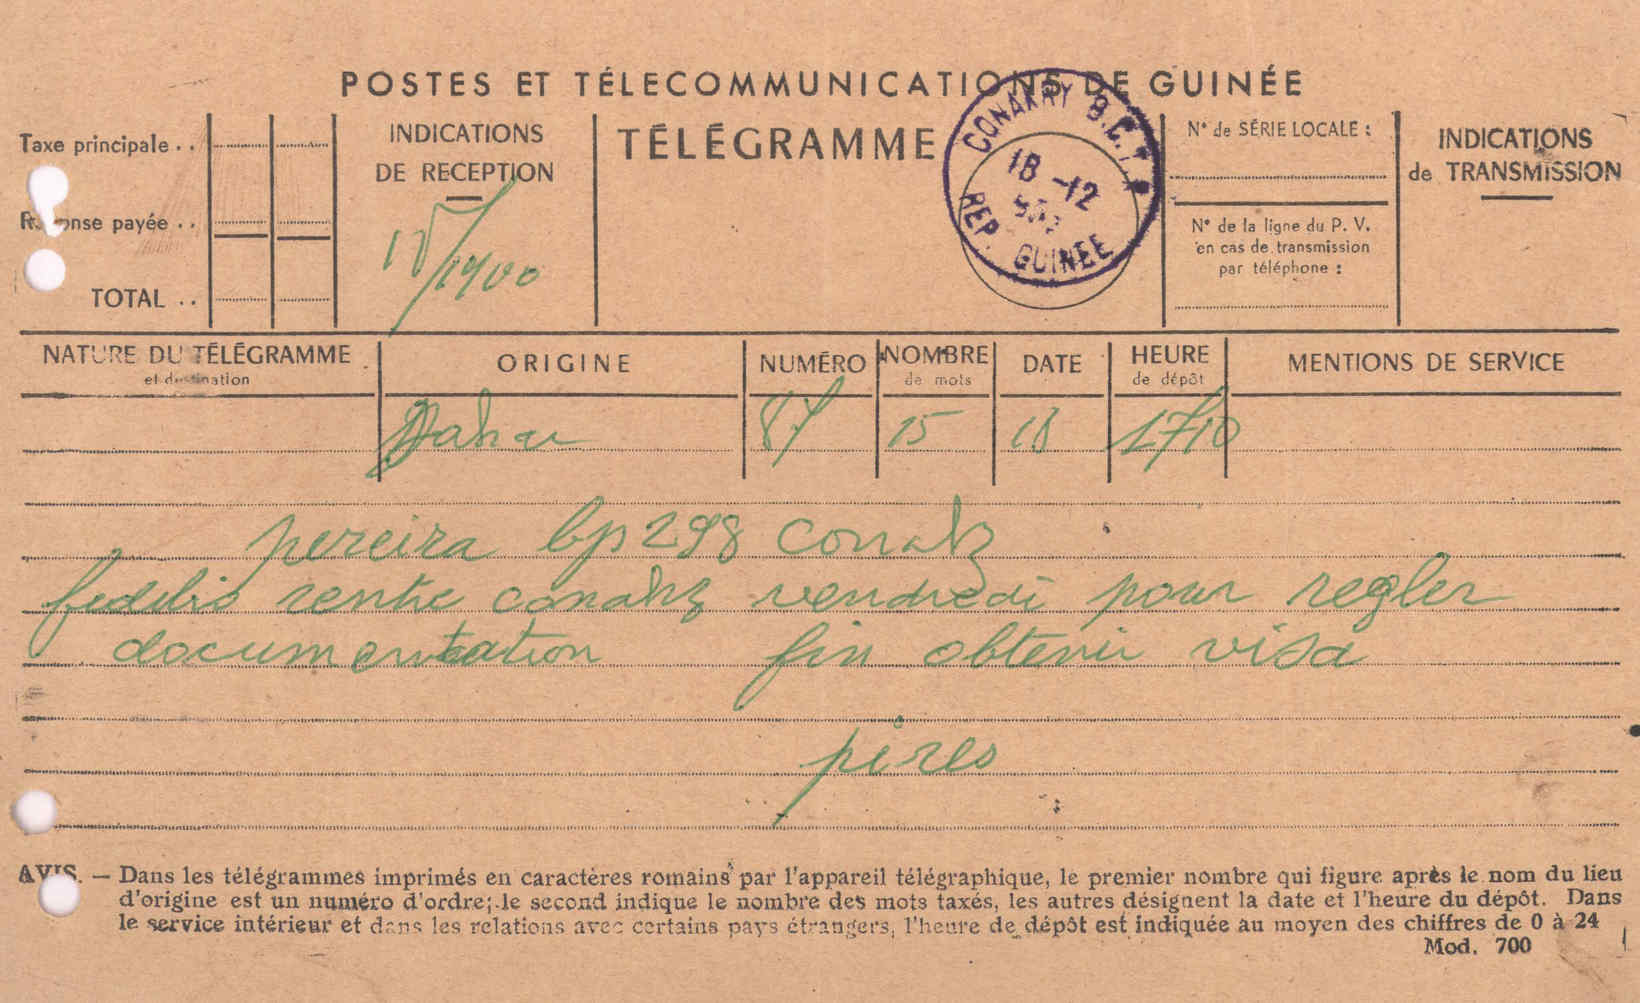 POSTES ET TÉLECOMMUNICATIONS DE GUINÉE
Taxe principale . .
Réponse payée . .
TOTAL . .
INDICATIONS
DE RECEPTION
18/1900
TÉLÉGRAMME
CONAKRY B.C.T.
18 -12
REP. GUINEE
N° de SÉRIE LOCALE :
N° de la ligne du P. V.
en cas de transmission
par téléphone :
INDICATIONS
de TRANSMISSION
NATURE DU TÉLÉGRAMME
et destination
ORIGINE
NUMÉRO
NOMBRE
de mots
DATE
HEURE
de dépôt
MENTIONS DE SERVICE
Dakar 87 15 18 1710
pereira bp 298 Conakry
fidelis rentre conakry vendredi pour regler
documentation fin obtenir visa
pires
AVIS. — Dans les télégrammes imprimés en caractères romains par l'appareil télégraphique, le premier nombre qui figure après le nom du lieu
d'origine est un numéro d'ordre; le second indique le nombre des mots taxés, les autres désignent la date et l'heure du dépôt. Dans
le service intérieur et dans les relations avec certains pays étrangers, l'heure de dépôt est indiquée au moyen des chiffres de 0 à 24
Mod. 700